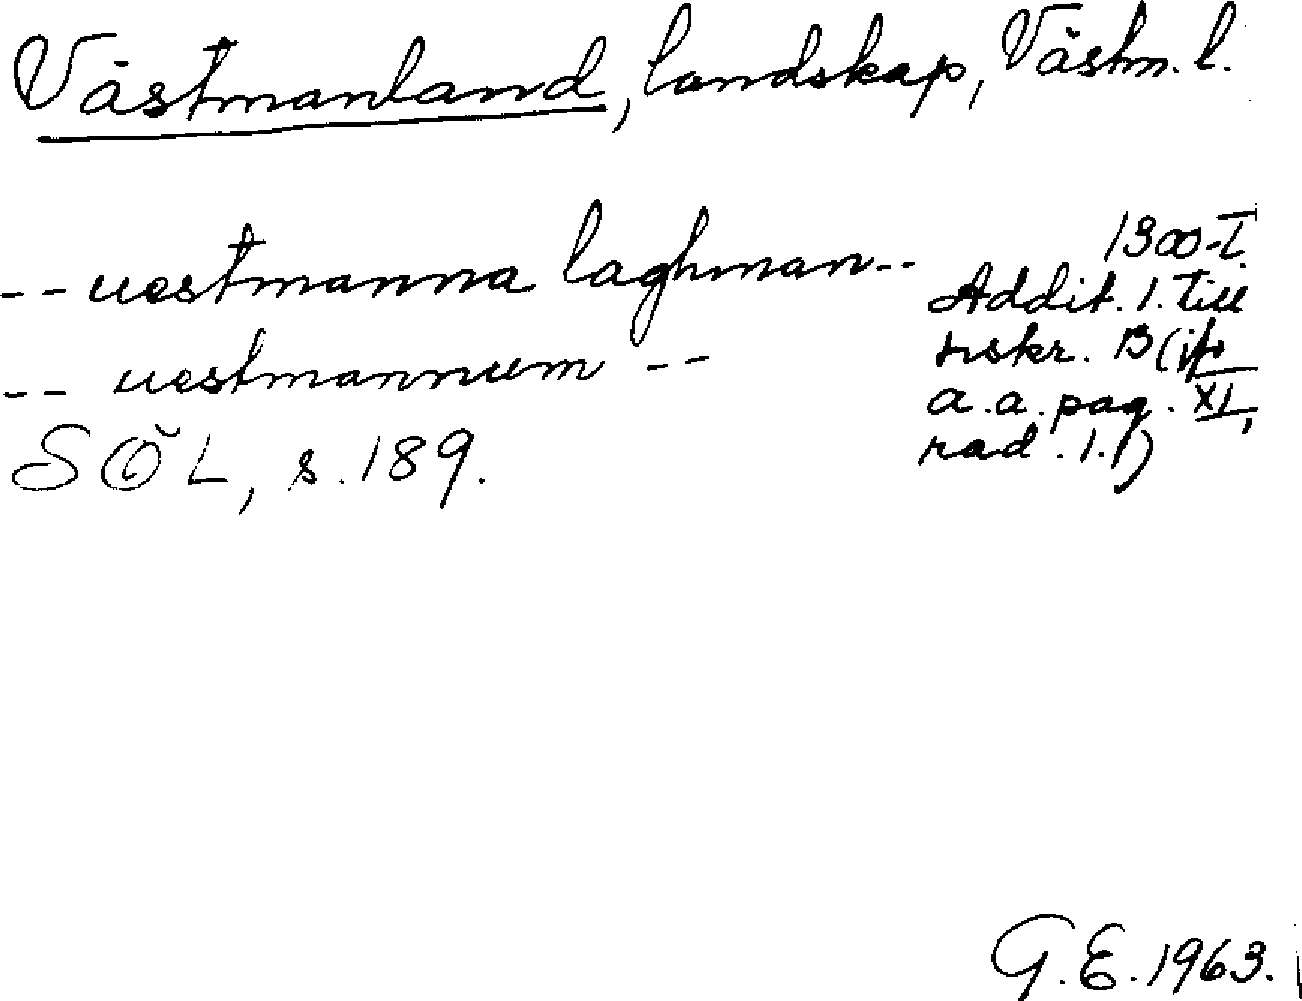 Västmanland, landskap, Västm. l.
-- uestmanna laghman-- 1300-T.
Addit. 1. till
-- uestmannum -- hskr. B (jfr
a.a. pag. XI,
SÖL, s. 189. rad. 1.f)
G.E. 1963.